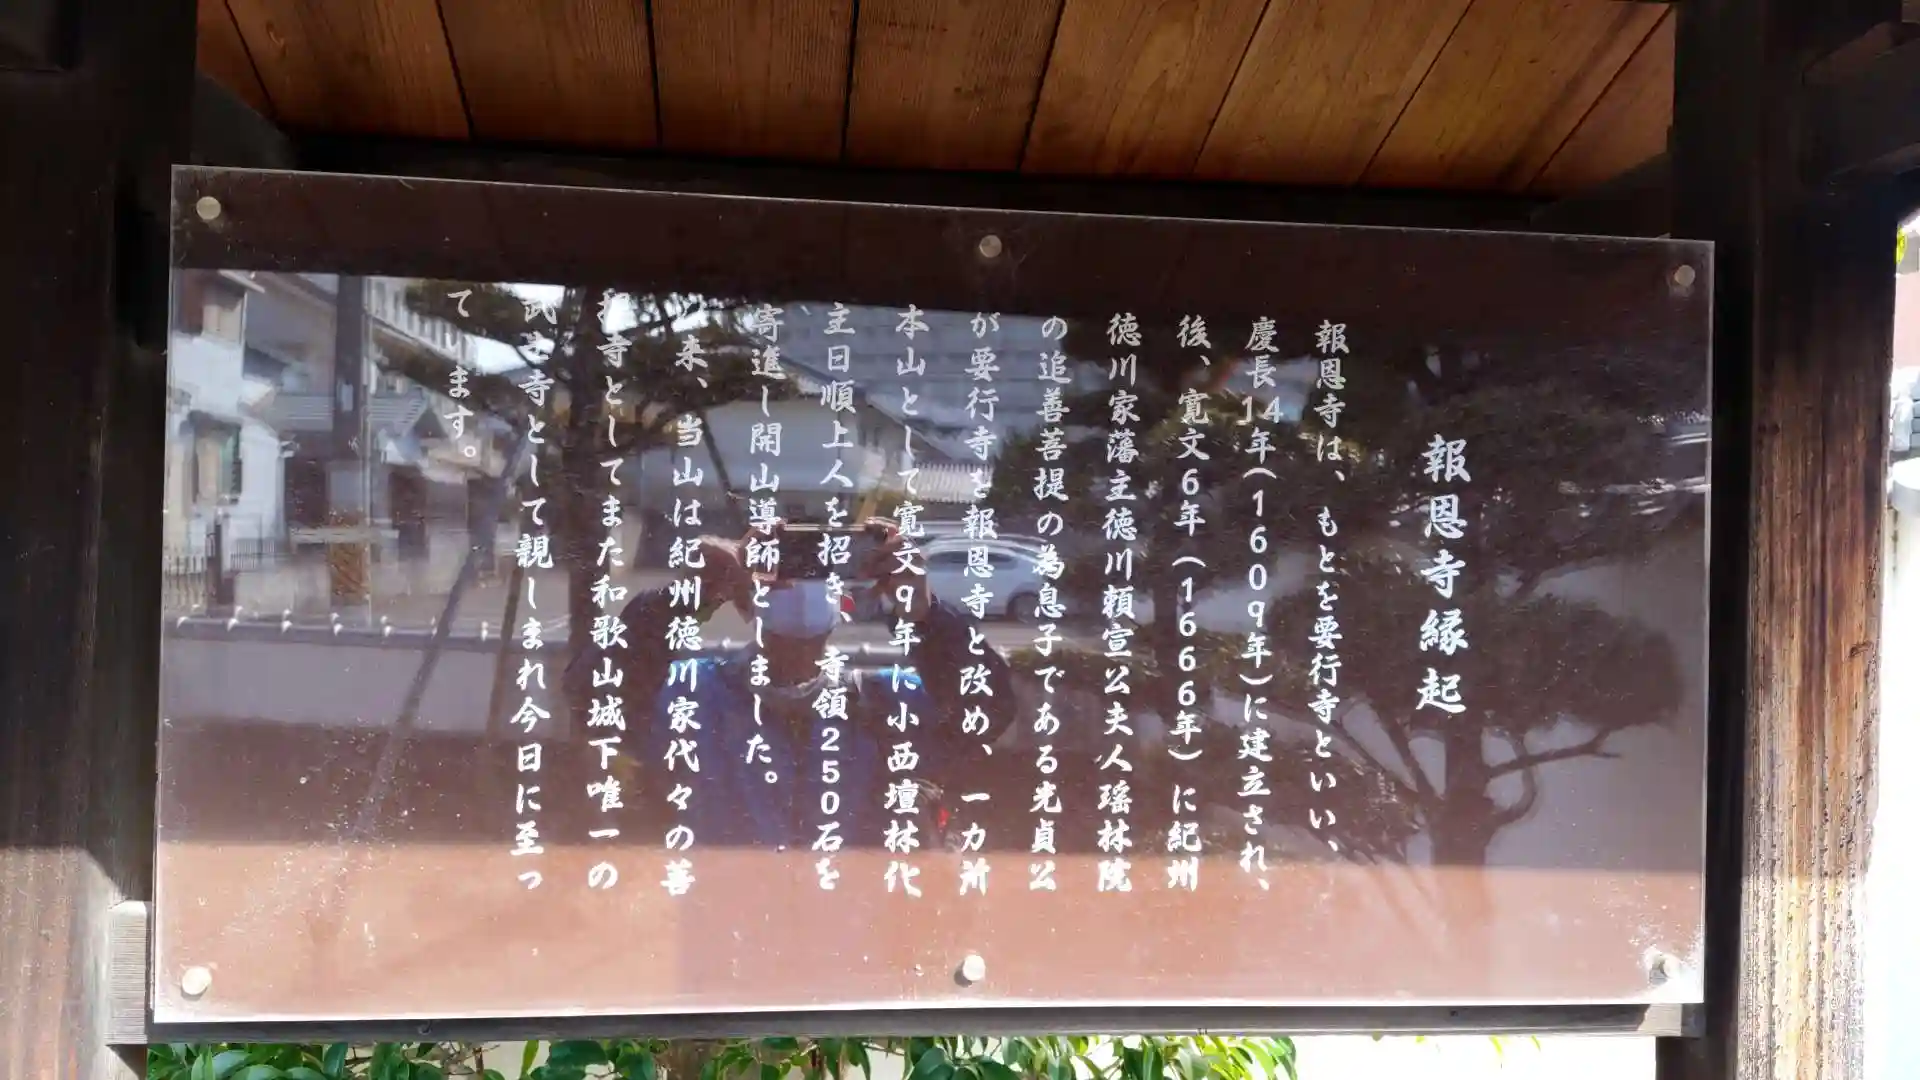 報恩寺縁起
報恩寺は、もとを要行寺といい、
慶長14年(1609年)に建立され、
後、寛文6年(1666年)に紀州
徳川家藩主徳川頼宣公夫人瑶林院
の追善菩提の為息子である光貞公
が要行寺を報恩寺と改め、一カ所
本山として寛文9年に小西壇林化
主日順上人を招き、寺領250石を
寄進し開山導師としました。
以来、当山は紀州徳川家代々の善
提寺としてまた和歌山城下唯一の
武士寺として親しまれ今日に至っ
ています。